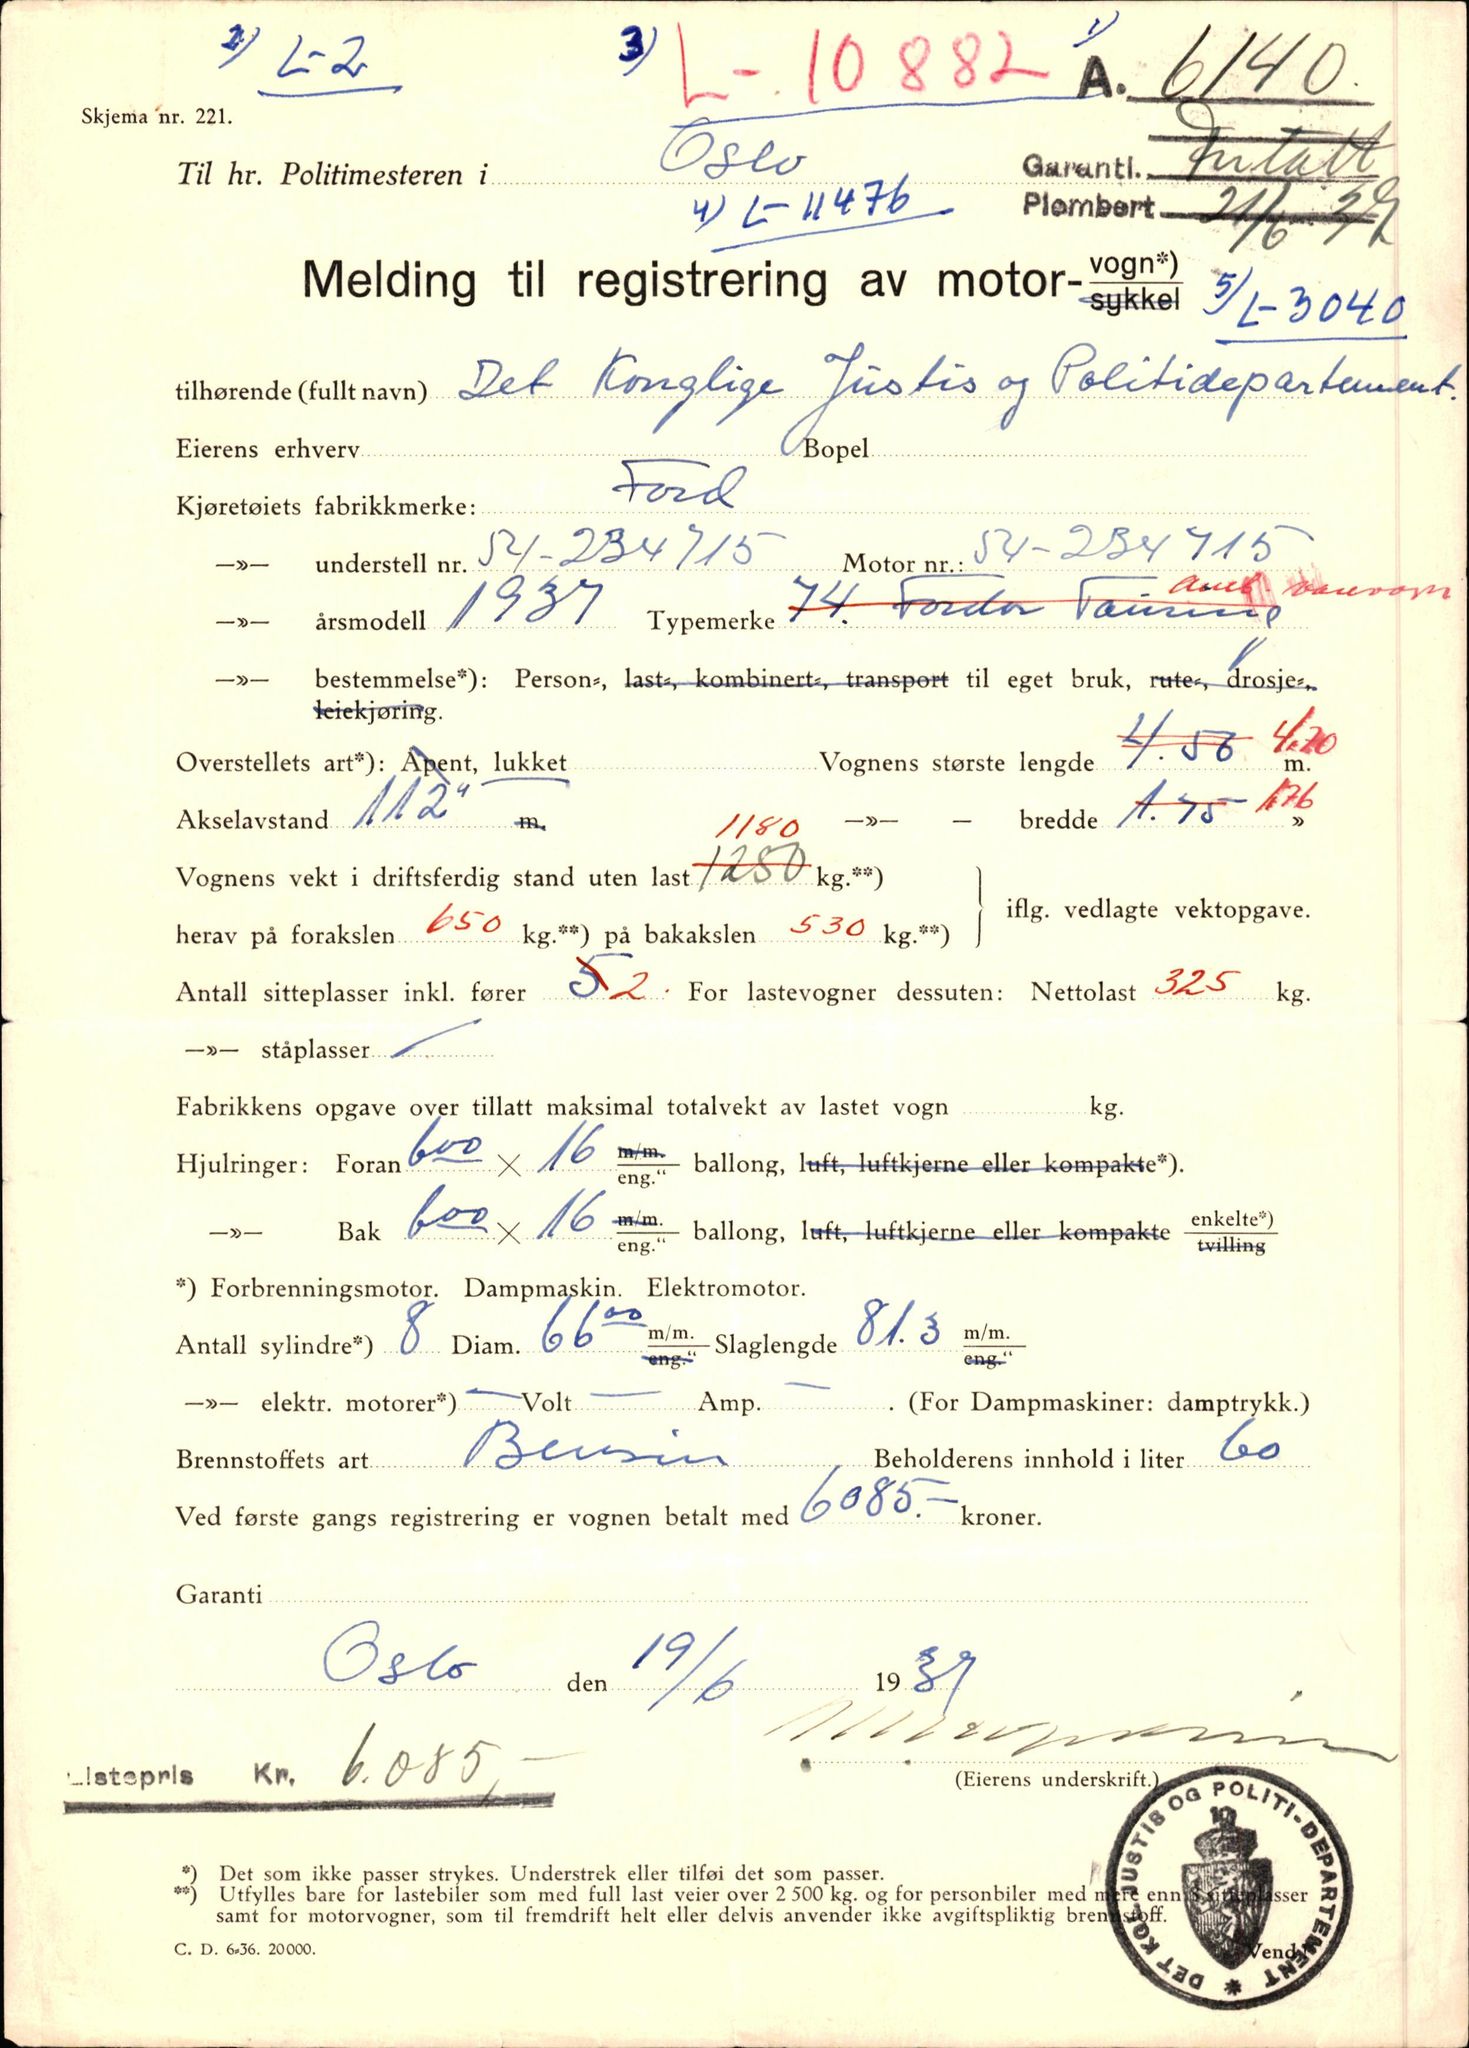 2) L-2
3) L-10882
1) A. 6140.
Skjema nr. 221.
Til hr. Politimesteren i Oslo
Garanti. Inntatt
4) L-11476
Plombert 21/6-39
Melding til registrering av motor- vogn*) sykkel
5/ L-3040
tilhørende (fullt navn) Det Konglige Justis og Politidepartement.
Eierens erhverv Bopel
Kjøretøiets fabrikkmerke: Ford
—»— understell nr. 54-234715 Motor nr.: 54-234715
—»— årsmodell 1937 Typemerke 74. Fordor Touring varevogn
—»— bestemmelse*): Person-, last-, kombinert-, transport til eget bruk, rute-, drosje-,
leiekjøring.
Overstellets art*): Åpent, lukket Vognens største lengde 4.56 4.20 m.
Akselavstand 112" m. —»— — bredde 1.75 1.76 »
1180
Vognens vekt i driftsferdig stand uten last 1250 kg.**)
iflg. vedlagte vektopgave.
herav på forakslen 650 kg.**) på bakakslen 530 kg.**)
Antall sitteplasser inkl. fører 5 2. For lastevogner dessuten: Nettolast 325 kg.
—»— ståplasser
Fabrikkens opgave over tillatt maksimal totalvekt av lastet vogn kg.
Hjulringer: Foran 600 × 16 m/m. eng.“ ballong, luft, luftkjerne eller kompakte*).
—»— Bak 600 × 16 m/m. eng.“ ballong, luft, luftkjerne eller kompakte enkelte*) tvilling
*) Forbrenningsmotor. Dampmaskin. Elektromotor.
Antall sylindre*) 8 Diam. 66.00 m/m. eng.“ Slaglengde 81.3 m/m. eng.“
—»— elektr. motorer*) — Volt — Amp. — . (For Dampmaskiner: damptrykk.)
Brennstoffets art Bensin Beholderens innhold i liter 60
Ved første gangs registrering er vognen betalt med 6085.— kroner.
Garanti
Oslo den 19/6 1939
Listepris Kr. 6.085,—
(Eierens underskrift.)
DET KGL. JUSTIS OG POLITI-DEPARTEMENT *
*) Det som ikke passer strykes. Understrek eller tilføi det som passer.
**) Utfylles bare for lastebiler som med full last veier over 2 500 kg. og for personbiler med mere enn sitteplasser
samt for motorvogner, som til fremdrift helt eller delvis anvender ikke avgiftspliktig brennstoff.
C. D. 6-36. 20 000.
Vend!